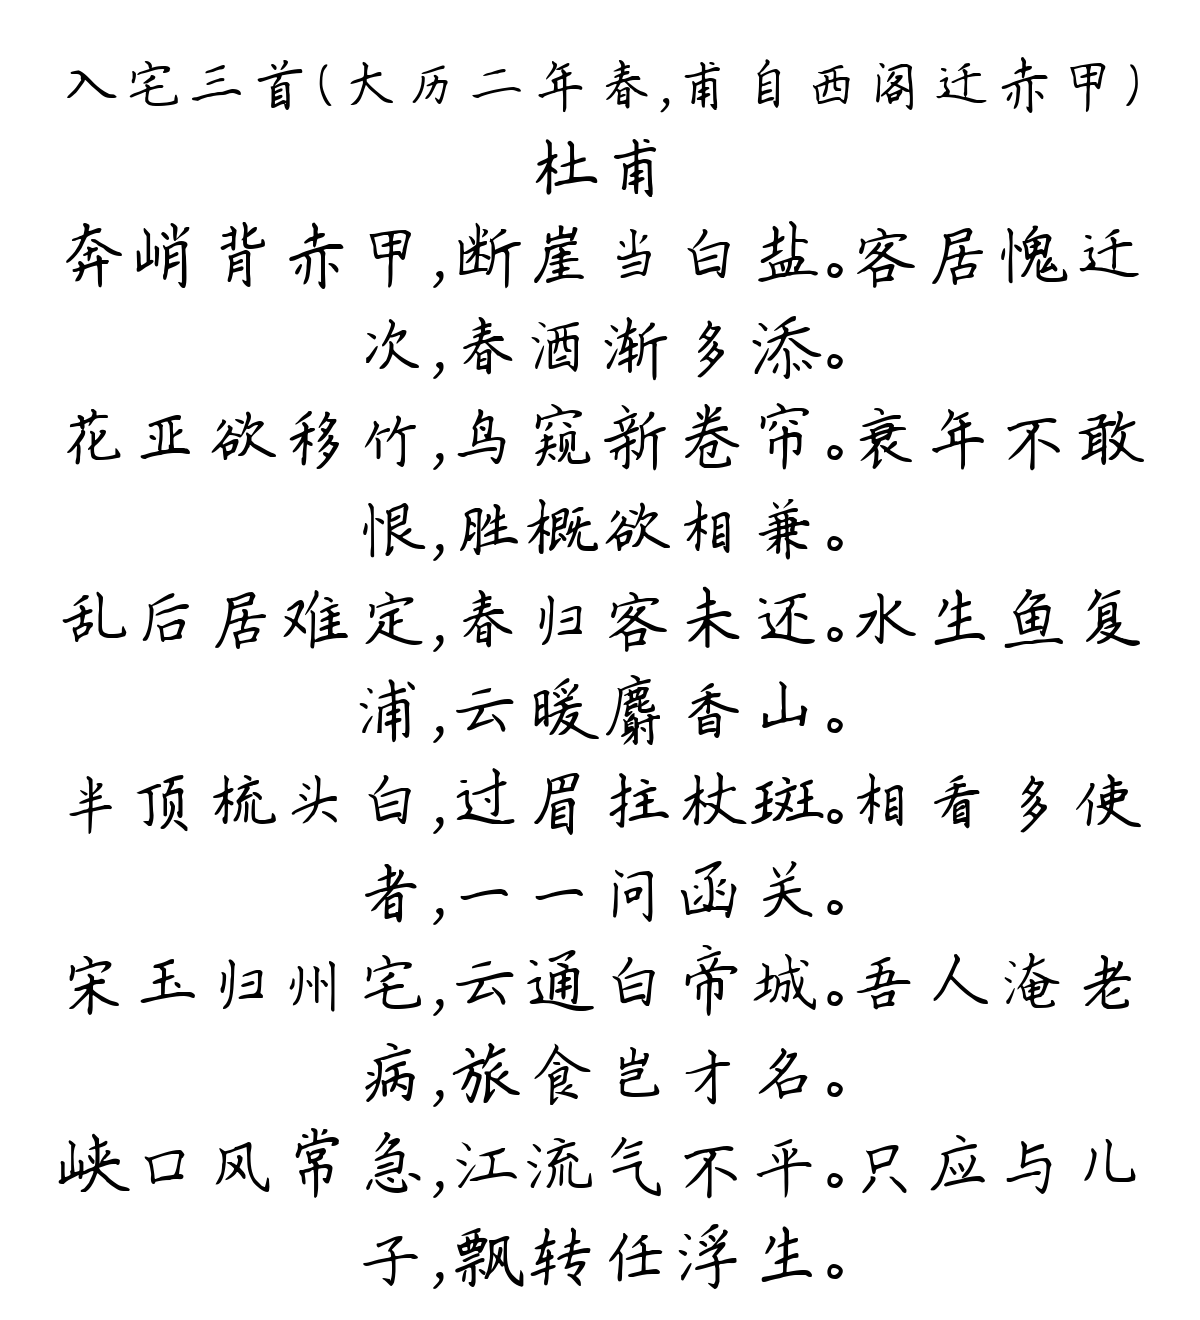 入宅三首(大历二年春,甫自西阁迁赤甲)
杜甫
奔峭背赤甲,断崖当白盐。客居愧迁
次,春酒渐多添。
花亚欲移竹,鸟窥新卷帘。衰年不敢
恨,胜概欲相兼。
乱后居难定,春归客未还。水生鱼复
浦,云暖麝香山。
半顶梳头白,过眉拄杖斑。相看多使
者,一一问函关。
宋玉归州宅,云通白帝城。吾人淹老
病,旅食岂才名。
峡口风常急,江流气不平。只应与儿
子,飘转任浮生。